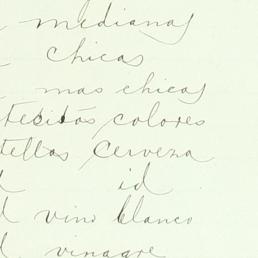 medianas
chicas
mas chicas
tesitas colores
tellas cerveza
d id
d vino blanco
d vinagre